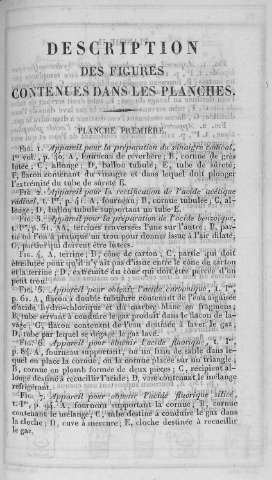 DESCRIPTION
DES FIGURES
CONTENUES DANS LES PLANCHES.
PLANCHE PREMIÈRE.
FIG. 1. Appareil pour la préparation du vinaigre radical,
1er vol., p. 40. A, fourneau de réverbère; B, cornue de grès
lutée; C, allonge; D, ballon tubulé; E, tube de sûreté;
F, flacon contenant du vinaigre et dans lequel doit plonger
l'extrémité du tube de sûreté E.
FIG. 2. Appareil pour la rectification de l'acide acétique
radical, t. 1er, p. 41. A, fourneau; B, cornue tubulée; C, al-
longe; D, ballon tubulé supportant un tube E.
FIG. 3. Appareil pour la préparation de l'acide benzoïque,
t. 1er, p. 51. AA, terrines renversées l'une sur l'autre; B, par-
tie où l'on a pratiqué un trou pour donner issue à l'air dilaté;
C, parties qui doivent être lutées.
FIG. 4. A, terrine; B, cône de carton; C, partie qui doit
être lutée pour qu'il n'y ait pas d'issue entre le cône de carton
et la terrine; D, extrémité du cône qui doit être percée d'un
petit trou.
FIG. 5. Appareil pour obtenir l'acide carbonique, t. 1er,
p. 61. A, flacon à double tubulure contenant de l'eau aiguisée
d'acide hydro-chlorique et du marbre blanc en fragmens;
B, tube servant à conduire le gaz produit dans le flacon de la-
vage; C, flacon contenant de l'eau destinée à laver le gaz;
D, tube par lequel se dégage le gaz lavé.
FIG. 6. Appareil pour obtenir l'acide fluorique, t. 1er,
p. 84. A, fourneau supportant, ou un bain de sable dans le-
quel on place la cornue, ou la cornue placée sur un triangle;
B, cornue en plomb formée de deux pièces; C, récipient al-
longé destiné à recueillir l'acide; D, vase contenant le mélange
réfrigérant.
FIG. 7. Appareil pour obtenir l'acide fluorique silicé,
t. 1er, p. 94. A, fourneau supportant la cornue; B, cornue
contenant le mélange; C, tube destiné à conduire le gaz dans
la cloche; D, cuve à mercure; E, cloche destinée à recueillir
le gaz.